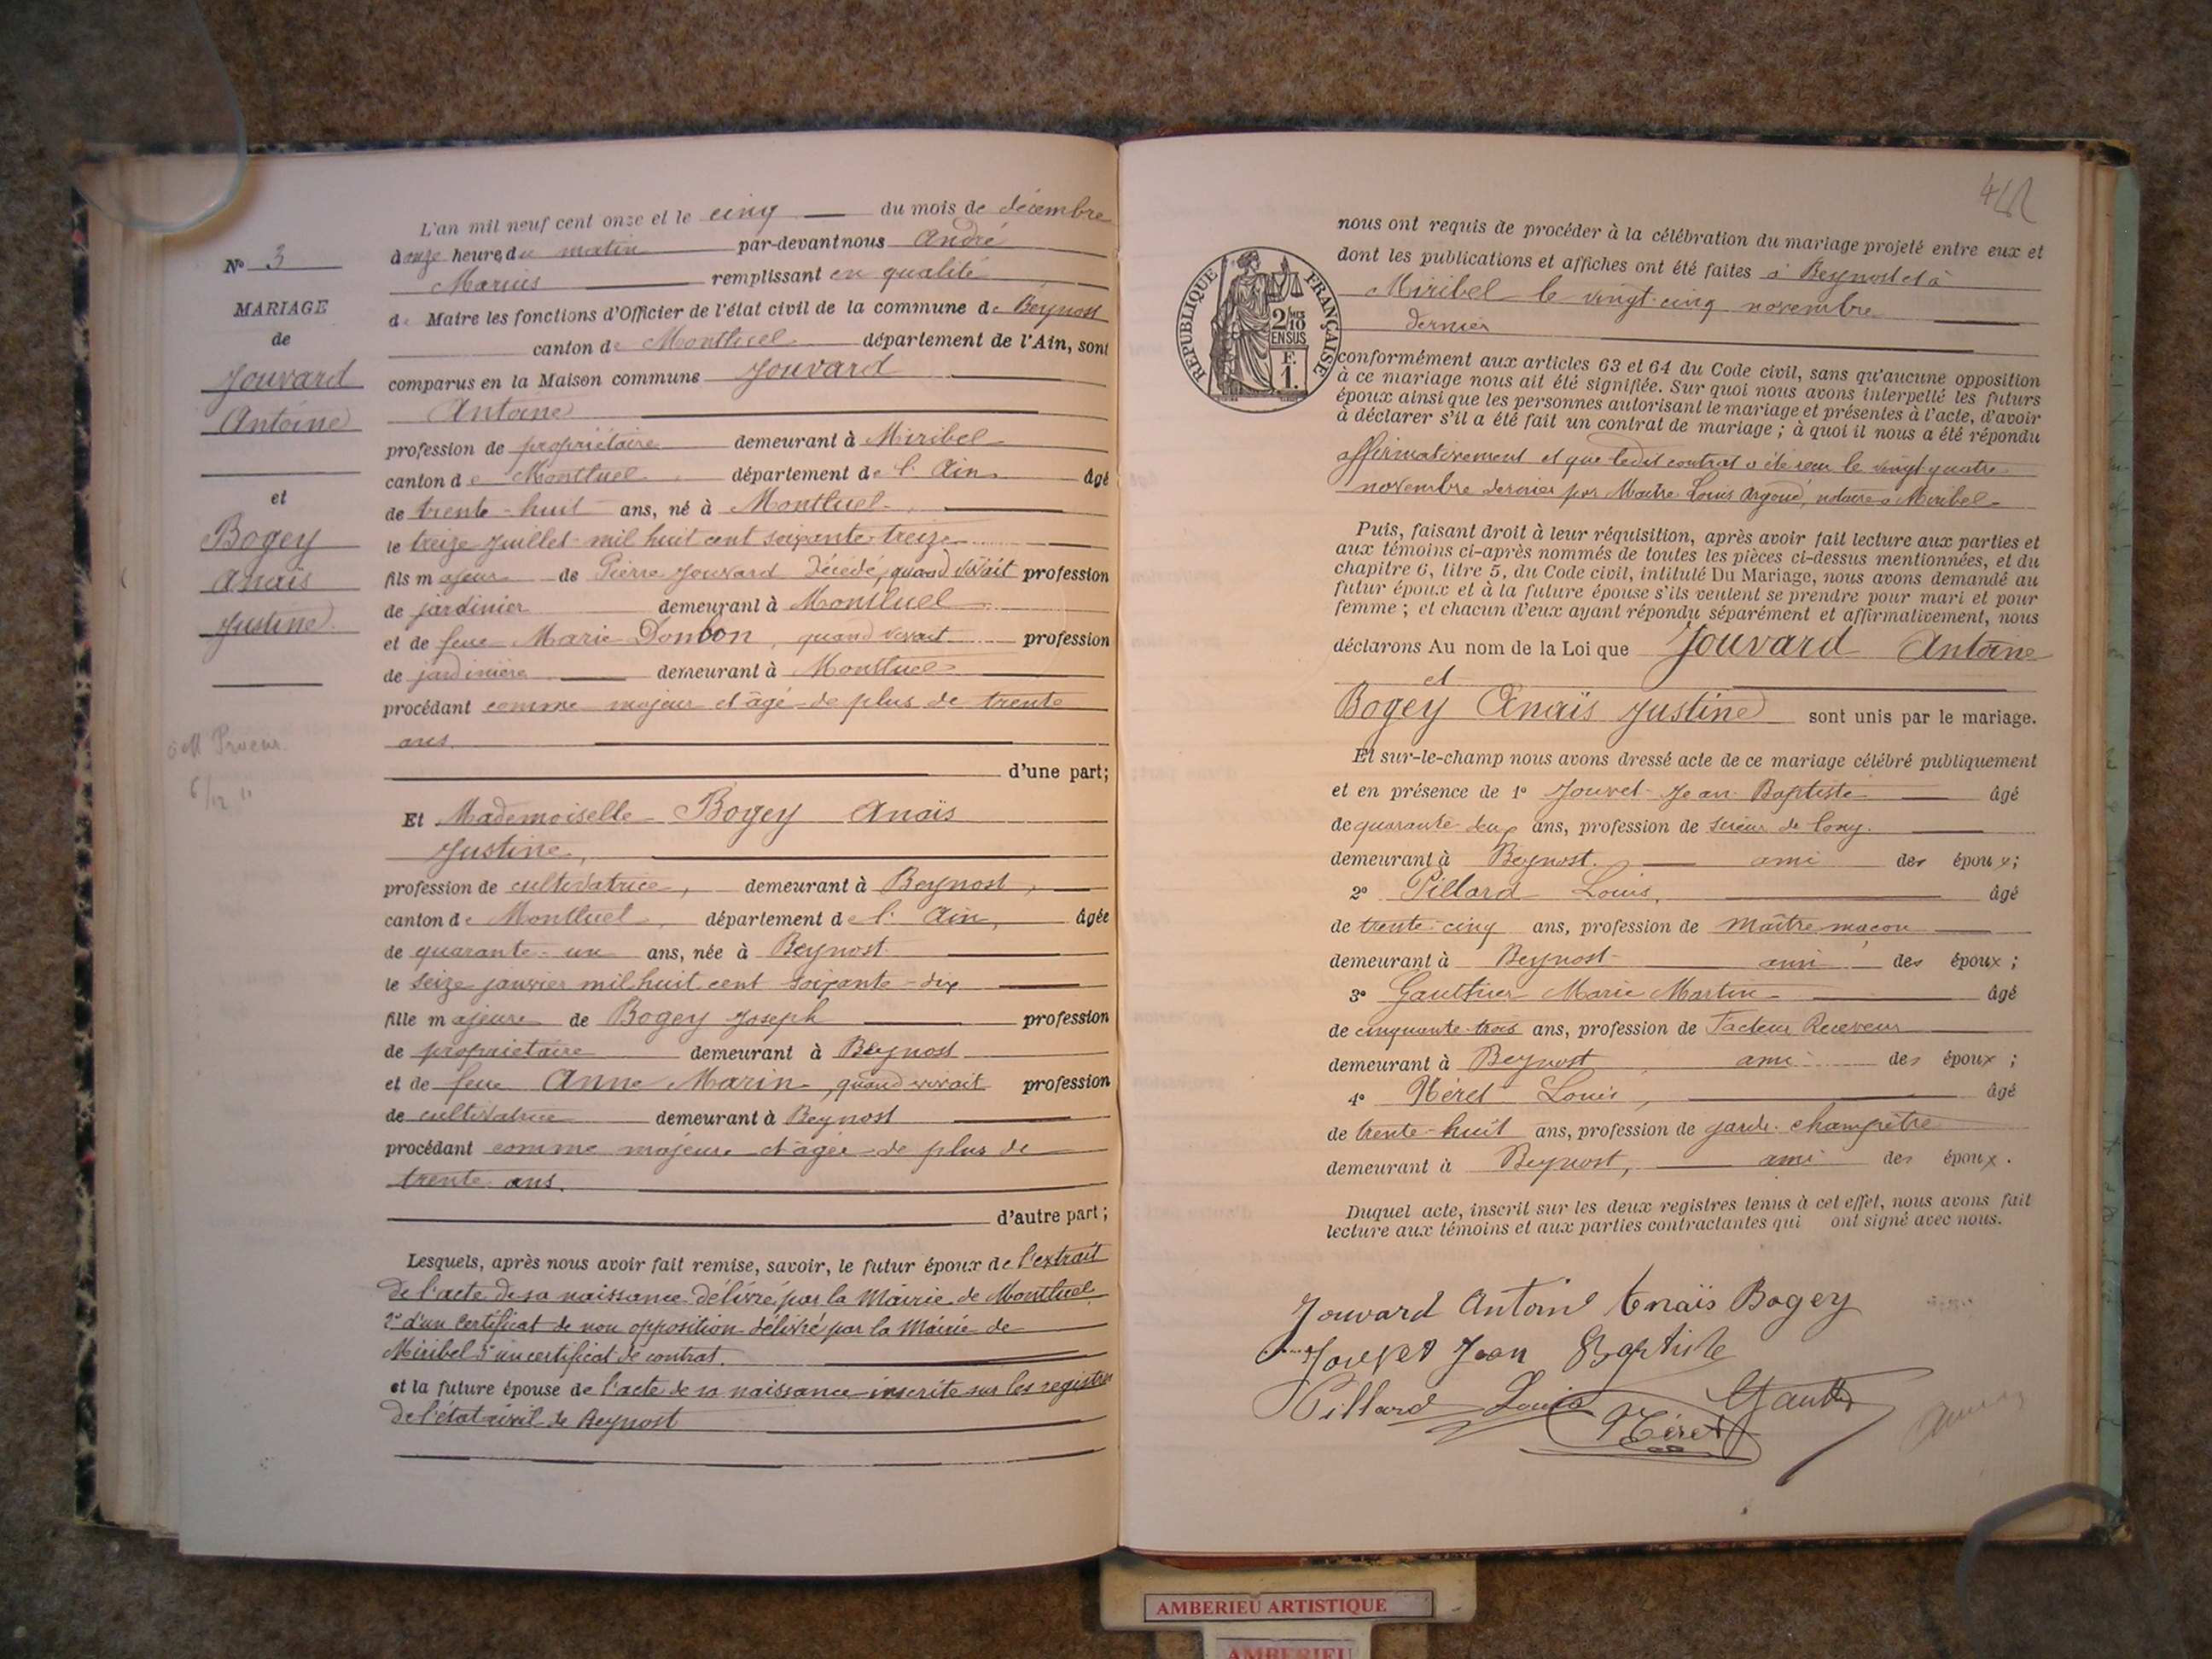 L'an mil neuf cent onze et le cinq du mois de décembre
à onze heures du matin par-devant nous André
Marius remplissant en qualité
de Maire les fonctions d'Officier de l'état civil de la commune de Beynost
canton de Montluel département de l'Ain, sont
comparus en la Maison commune Jouvard
Antoine
profession de propriétaire demeurant à Miribel
canton de Montluel département de l'Ain âgé
de trente-huit ans, né à Montluel
le treize juillet mil huit cent soixante-treize
fils majeur de Pierre Jouvard décédé, quand vivait profession
de jardinier demeurant à Montluel
et de feue Marie Donbon, quand vivait profession
de jardinière demeurant à Montluel
procédant comme majeur et âgé de plus de trente
ans
d'une part;
N° 3
MARIAGE
de
Jouvard
Antoine
et
Bogey
Anaïs
Justine.
6/12 11
Et Mademoiselle Bogey Anaïs
Justine,
profession de cultivatrice, demeurant à Beynost,
canton de Montluel, département de l'Ain, âgée
de quarante-un ans, née à Beynost
le seize janvier mil huit cent soixante-dix
fille majeure de Bogey Joseph profession
de propriétaire demeurant à Beynost
et de feue Anne Marin, quand vivait profession
de cultivatrice demeurant à Beynost
procédant comme majeure et âgée de plus de
trente ans.
d'autre part;
Lesquels, après nous avoir fait remise, savoir, le futur époux de l'extrait
de l'acte de sa naissance délivré par la Mairie de Montluel
2° d'un certificat de non opposition délivré par la Mairie de
Miribel 3° un certificat de contrat.
et la future épouse de l'acte de sa naissance inscrite sur les registres
de l'état civil de Beynost
RÉPUBLIQUE FRANÇAISE
2/10 MES
EN SUS
F.
1.
nous ont requis de procéder à la célébration du mariage projeté entre eux et
dont les publications et affiches ont été faites à Beynost et à
Miribel le vingt-cinq novembre
dernier
conformément aux articles 63 et 64 du Code civil, sans qu'aucune opposition
à ce mariage nous ait été signifiée. Sur quoi nous avons interpellé les futurs
époux ainsi que les personnes autorisant le mariage et présentes à l'acte, d'avoir
à déclarer s'il a été fait un contrat de mariage; à quoi il nous a été répondu
affirmativement et que ledit contrat a été reçu le vingt quatre
novembre dernier par Maître Louis Argoud, notaire à Miribel
Puis, faisant droit à leur réquisition, après avoir fait lecture aux parties et
aux témoins ci-après nommés de toutes les pièces ci-dessus mentionnées, et du
chapitre 6, titre 5, du Code civil, intitulé Du Mariage, nous avons demandé au
futur époux et à la future épouse s'ils veulent se prendre pour mari et pour
femme; et chacun d'eux ayant répondu séparément et affirmativement, nous
déclarons Au nom de la Loi que Jouvard Antoine
et
Bogey Anaïs Justine sont unis par le mariage.
Et sur-le-champ nous avons dressé acte de ce mariage célébré publiquement
et en présence de 1° Jouvet Jean Baptiste âgé
de quarante-deux ans, profession de scieur de long.
demeurant à Beynost. ami des époux;
2° Pillard Louis, âgé
de trente-cinq ans, profession de Maître maçon
demeurant à Beynost ami des époux;
3° Gauthier Marie Martin âgé
de cinquante-trois ans, profession de Facteur Receveur
demeurant à Beynost ami des époux;
4° Néret Louis, âgé
de trente-huit ans, profession de garde-champêtre
demeurant à Beynost, ami des époux.
Duquel acte, inscrit sur les deux registres tenus à cet effet, nous avons fait
lecture aux témoins et aux parties contractantes qui ont signé avec nous.
Jouvard Antoine Anaïs Bogey
Jouvet Jean Baptiste
Pillard Louis Gauth
Néret
AMBERIEU ARTISTIQUE
AMBERIEU